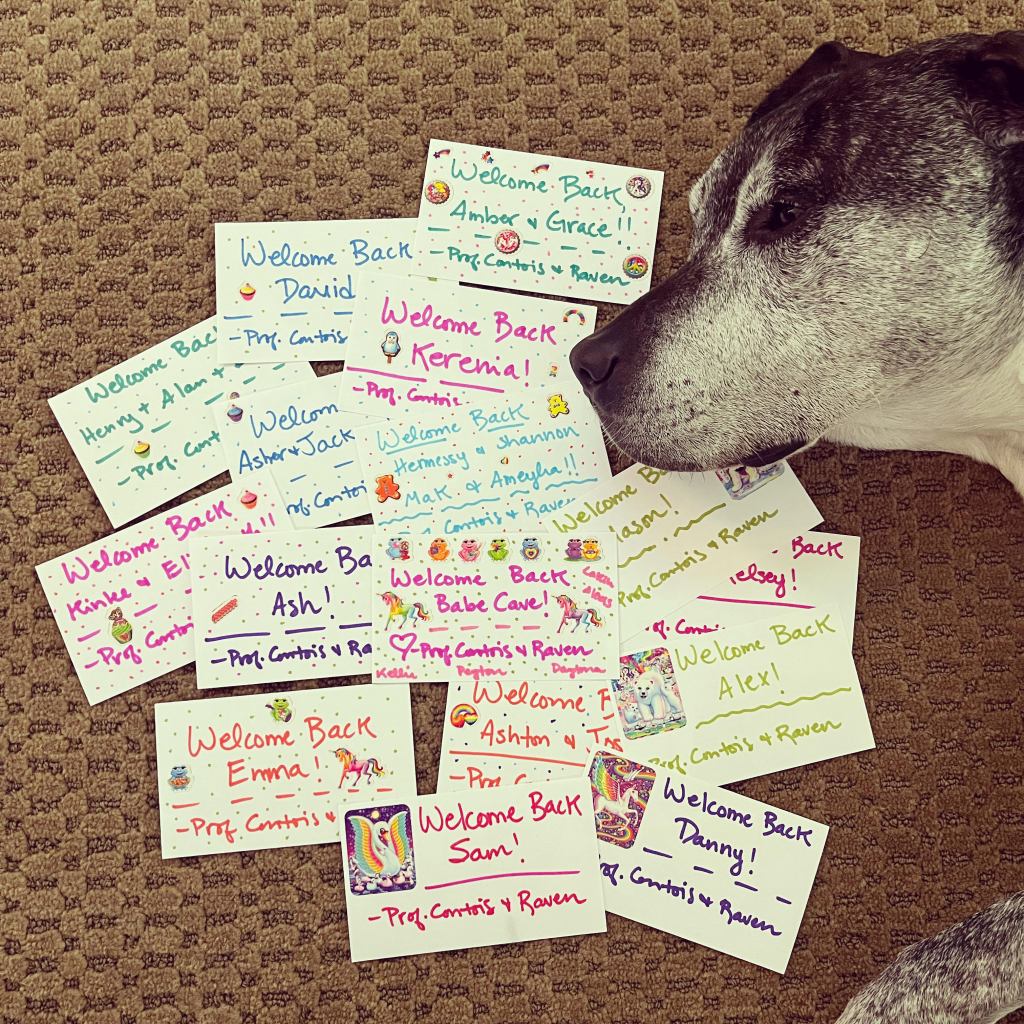 Welcome Back,
Amber & Grace!!
Prof. Contois & Raven
Welcome Back
David
- Prof. Conto
Welcome Back
Kerenia!
- Prof. Contois
Welcome Bac
Henry & Alan &
- Prof. Cont
Welcom
Asher & Jack
rof. Contoi
Welcome Back
Hermessy & Shannon
Mak & Ameyha!!
Contois & Raven
Welcome Ba
Jason!
Prof. Contois & Raven
Back
elsey!
of. Conto
Welcome Back
Kinke & El
- Prof. Contoi
Welcome Ba
Ash!
- Prof. Contois & Ra
Welcome Back
Babe Cave!
- Prof. Contois & Raven
Kellie Peyton Daytona
Welcome Back
Alex!
Prof. Contois & Raven
Welcome Back
Emma!
- Prof. Contois &
Welcome
Ashton &
- Prof. Co
Welcome Back
Sam!
- Prof. Contois & Raven
Welcome Back
Danny!
of. Contois & Raven